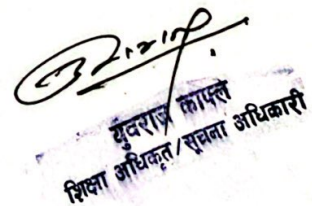 युवराज काफ्ले
शिक्षा अधिकृत/सूचना अधिकारी